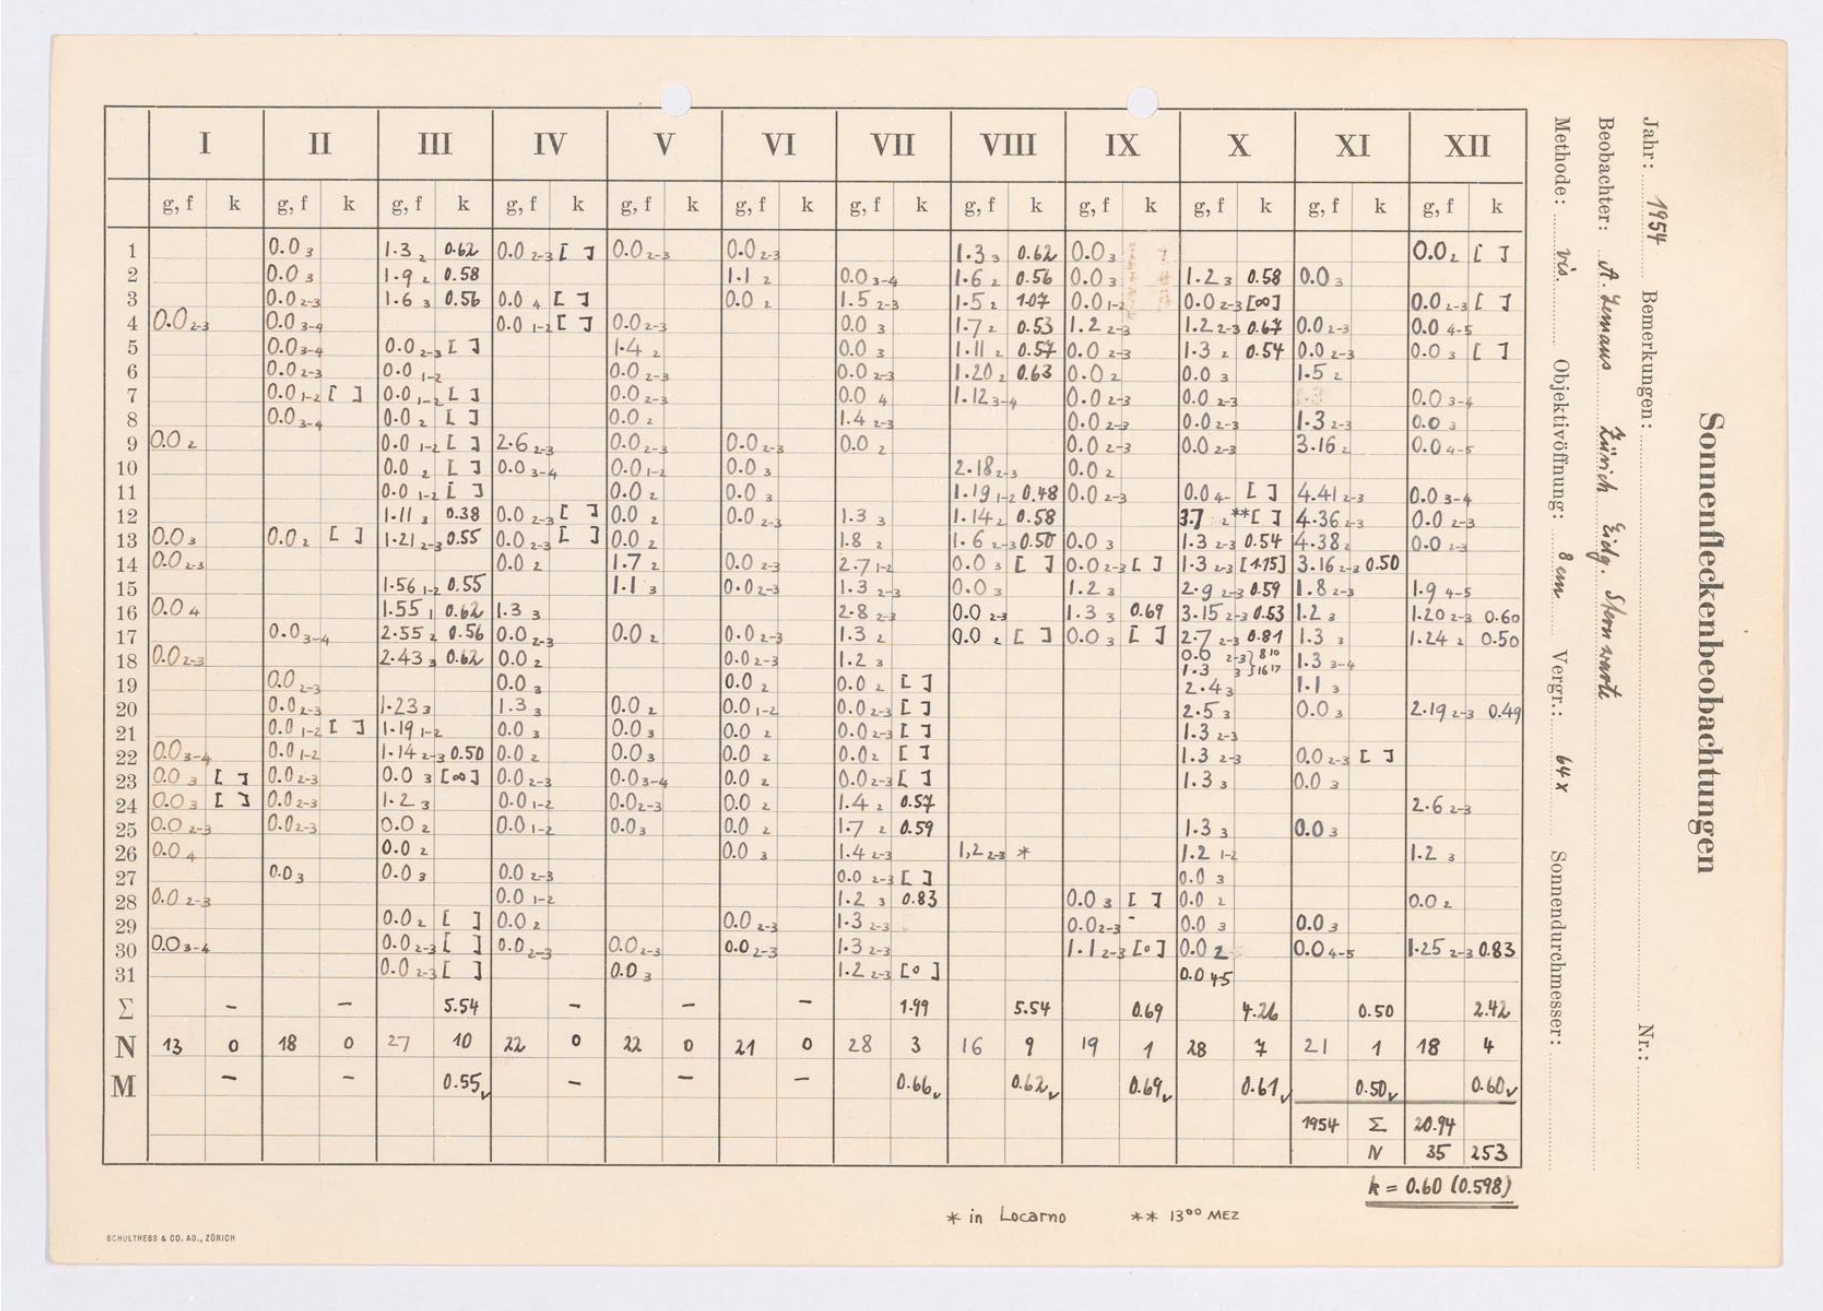 Sonnenfleckenbeobachtungen
Jahr: 1954 Bemerkungen: Nr.:
Beobachter: Zürich Eidg. Sternwarte
Methode: vis. Objektivöffnung: 8 cm Vergr.: 64 x Sonnendurchmesser:
I II III IV V VI VII VIII IX X XI XII
g, f k g, f k g, f k g, f k g, f k g, f k g, f k g, f k g, f k g, f k g, f k g, f k
1 0.0 3 1.3 2 0.62 0.0 2-3 [ ] 0.0 2-3 0.0 2-3 1.3 3 0.62 0.0 3 0.0 2 [ ]
2 0.0 3 1.9 2 0.58 1.1 2 0.0 3-4 1.6 2 0.56 0.0 3 1.2 3 0.58 0.0 3
3 0.0 2-3 1.6 3 0.56 0.0 4 [ ] 0.0 2 1.5 2-3 1.5 2 1.07 0.0 1-2 0.0 2-3 [∞] 0.0 2-3 [ ]
4 0.0 2-3 0.0 3-4 0.0 1-2 [ ] 0.0 2-3 0.0 3 1.7 2 0.53 1.2 2-3 1.2 2-3 0.67 0.0 2-3 0.0 4-5
5 0.0 3-4 0.0 2-3 [ ] 1.4 2 0.0 3 1.11 2 0.57 0.0 2-3 1.3 2 0.54 0.0 2-3 0.0 3 [ ]
6 0.0 2-3 0.0 1-2 0.0 2-3 0.0 2-3 1.20 2 0.63 0.0 2 0.0 3 1.5 2
7 0.0 1-2 [ ] 0.0 1-2 [ ] 0.0 2-3 0.0 4 1.12 3-4 0.0 2-3 0.0 2-3 0.0 3-4
8 0.0 3-4 0.0 2 [ ] 0.0 2 1.4 2-3 0.0 2-3 0.0 2-3 1.3 2-3 0.0 3
9 0.0 2 0.0 1-2 [ ] 2.6 2-3 0.0 2-3 0.0 2-3 0.0 2 0.0 2-3 0.0 2-3 3.16 2 0.0 4-5
10 0.0 2 [ ] 0.0 3-4 0.0 1-2 0.0 3 2.18 2-3 0.0 2
11 0.0 1-2 [ ] 0.0 2 0.0 3 1.19 1-2 0.48 0.0 2-3 0.0 4- [ ] 4.41 2-3 0.0 3-4
12 1.11 3 0.38 0.0 2-3 [ ] 0.0 2 0.0 2-3 1.3 3 1.14 2 0.58 3.7 2 ** [ ] 4.36 2-3 0.0 2-3
13 0.0 3 0.0 2 [ ] 1.21 2-3 0.55 0.0 2-3 [ ] 0.0 2 1.8 2 1.6 2-3 0.50 0.0 3 1.3 2-3 0.54 4.38 2 0.0 2-3
14 0.0 2-3 0.0 2 1.7 2 0.0 2-3 2.7 1-2 0.0 3 [ ] 0.0 2-3 [ ] 1.3 2-3 [1.15] 3.16 2-3 0.50
15 1.56 1-2 0.55 1.1 3 0.0 2-3 1.3 2-3 0.0 3 1.2 3 2.9 2-3 0.59 1.8 2-3 1.9 4-5
16 0.0 4 1.55 1 0.62 1.3 3 2.8 2-3 0.0 2-3 1.3 3 0.69 3.15 2-3 0.53 1.2 3 1.20 2-3 0.60
17 0.0 3-4 2.55 2 0.56 0.0 2-3 0.0 2 0.0 2-3 1.3 2 0.0 2 [ ] 0.0 3 [ ] 2.7 2-3 0.81 1.3 3 1.24 2 0.50
18 0.0 2-3 2.43 3 0.62 0.0 2 0.0 2-3 1.2 3 0.0 2-3 } 8 10 1.3 3-4
1.3 3 } 16 17
19 0.0 2-3 0.0 3 0.0 2 0.0 2 [ ] 2.4 3 1.1 3
20 0.0 2-3 1.23 3 1.3 3 0.0 2 0.0 1-2 0.0 2-3 [ ] 2.5 3 0.0 3 2.19 2-3 0.49
21 0.0 1-2 [ ] 1.19 1-2 0.0 3 0.0 3 0.0 2 0.0 2-3 [ ] 1.3 2-3
22 0.0 3-4 0.0 1-2 1.14 2-3 0.50 0.0 2 0.0 3 0.0 2 0.0 2 [ ] 1.3 2-3 0.0 2-3 [ ]
23 0.0 3 [ ] 0.0 2-3 0.0 3 [∞] 0.0 2-3 0.0 3-4 0.0 2 0.0 2-3 [ ] 1.3 3 0.0 3
24 0.0 3 [ ] 0.0 2-3 1.2 3 0.0 1-2 0.0 2-3 0.0 2 1.4 2 0.57 2.6 2-3
25 0.0 2-3 0.0 2-3 0.0 2 0.0 1-2 0.0 3 0.0 2 1.7 2 0.59 1.3 3 0.0 3
26 0.0 4 0.0 2 0.0 3 1.4 2-3 1,2 2-3 * 1.2 1-2 1.2 3
27 0.0 3 0.0 3 0.0 2-3 0.0 2-3 [ ] 0.0 3
28 0.0 2-3 0.0 1-2 1.2 3 0.83 0.0 3 [ ] 0.0 2 0.0 2
29 0.0 2 [ ] 0.0 2 0.0 2-3 1.3 2-3 0.0 2-3 - 0.0 3 0.0 3
30 0.0 3-4 0.0 2-3 [ ] 0.0 2-3 0.0 2-3 0.0 2-3 1.3 2-3 1.1 2-3 [0] 0.0 2 0.0 4-5 1.25 2-3 0.83
31 0.0 2-3 [ ] 0.0 3 1.2 2-3 [0] 0.0 4-5
Σ - - 5.54 - - - 1.99 5.54 0.69 4.26 0.50 2.42
N 13 0 18 0 27 10 22 0 22 0 21 0 28 3 16 9 19 1 28 7 21 1 18 4
M - - 0.55 - - - 0.66 0.62 0.69 0.61 0.50 0.60
1954 Σ 20.94
N 35 253
k = 0.60 (0.598)
* in Locarno ** 13⁰⁰ MEZ
SCHULTHESS & CO. AG., ZÜRICH